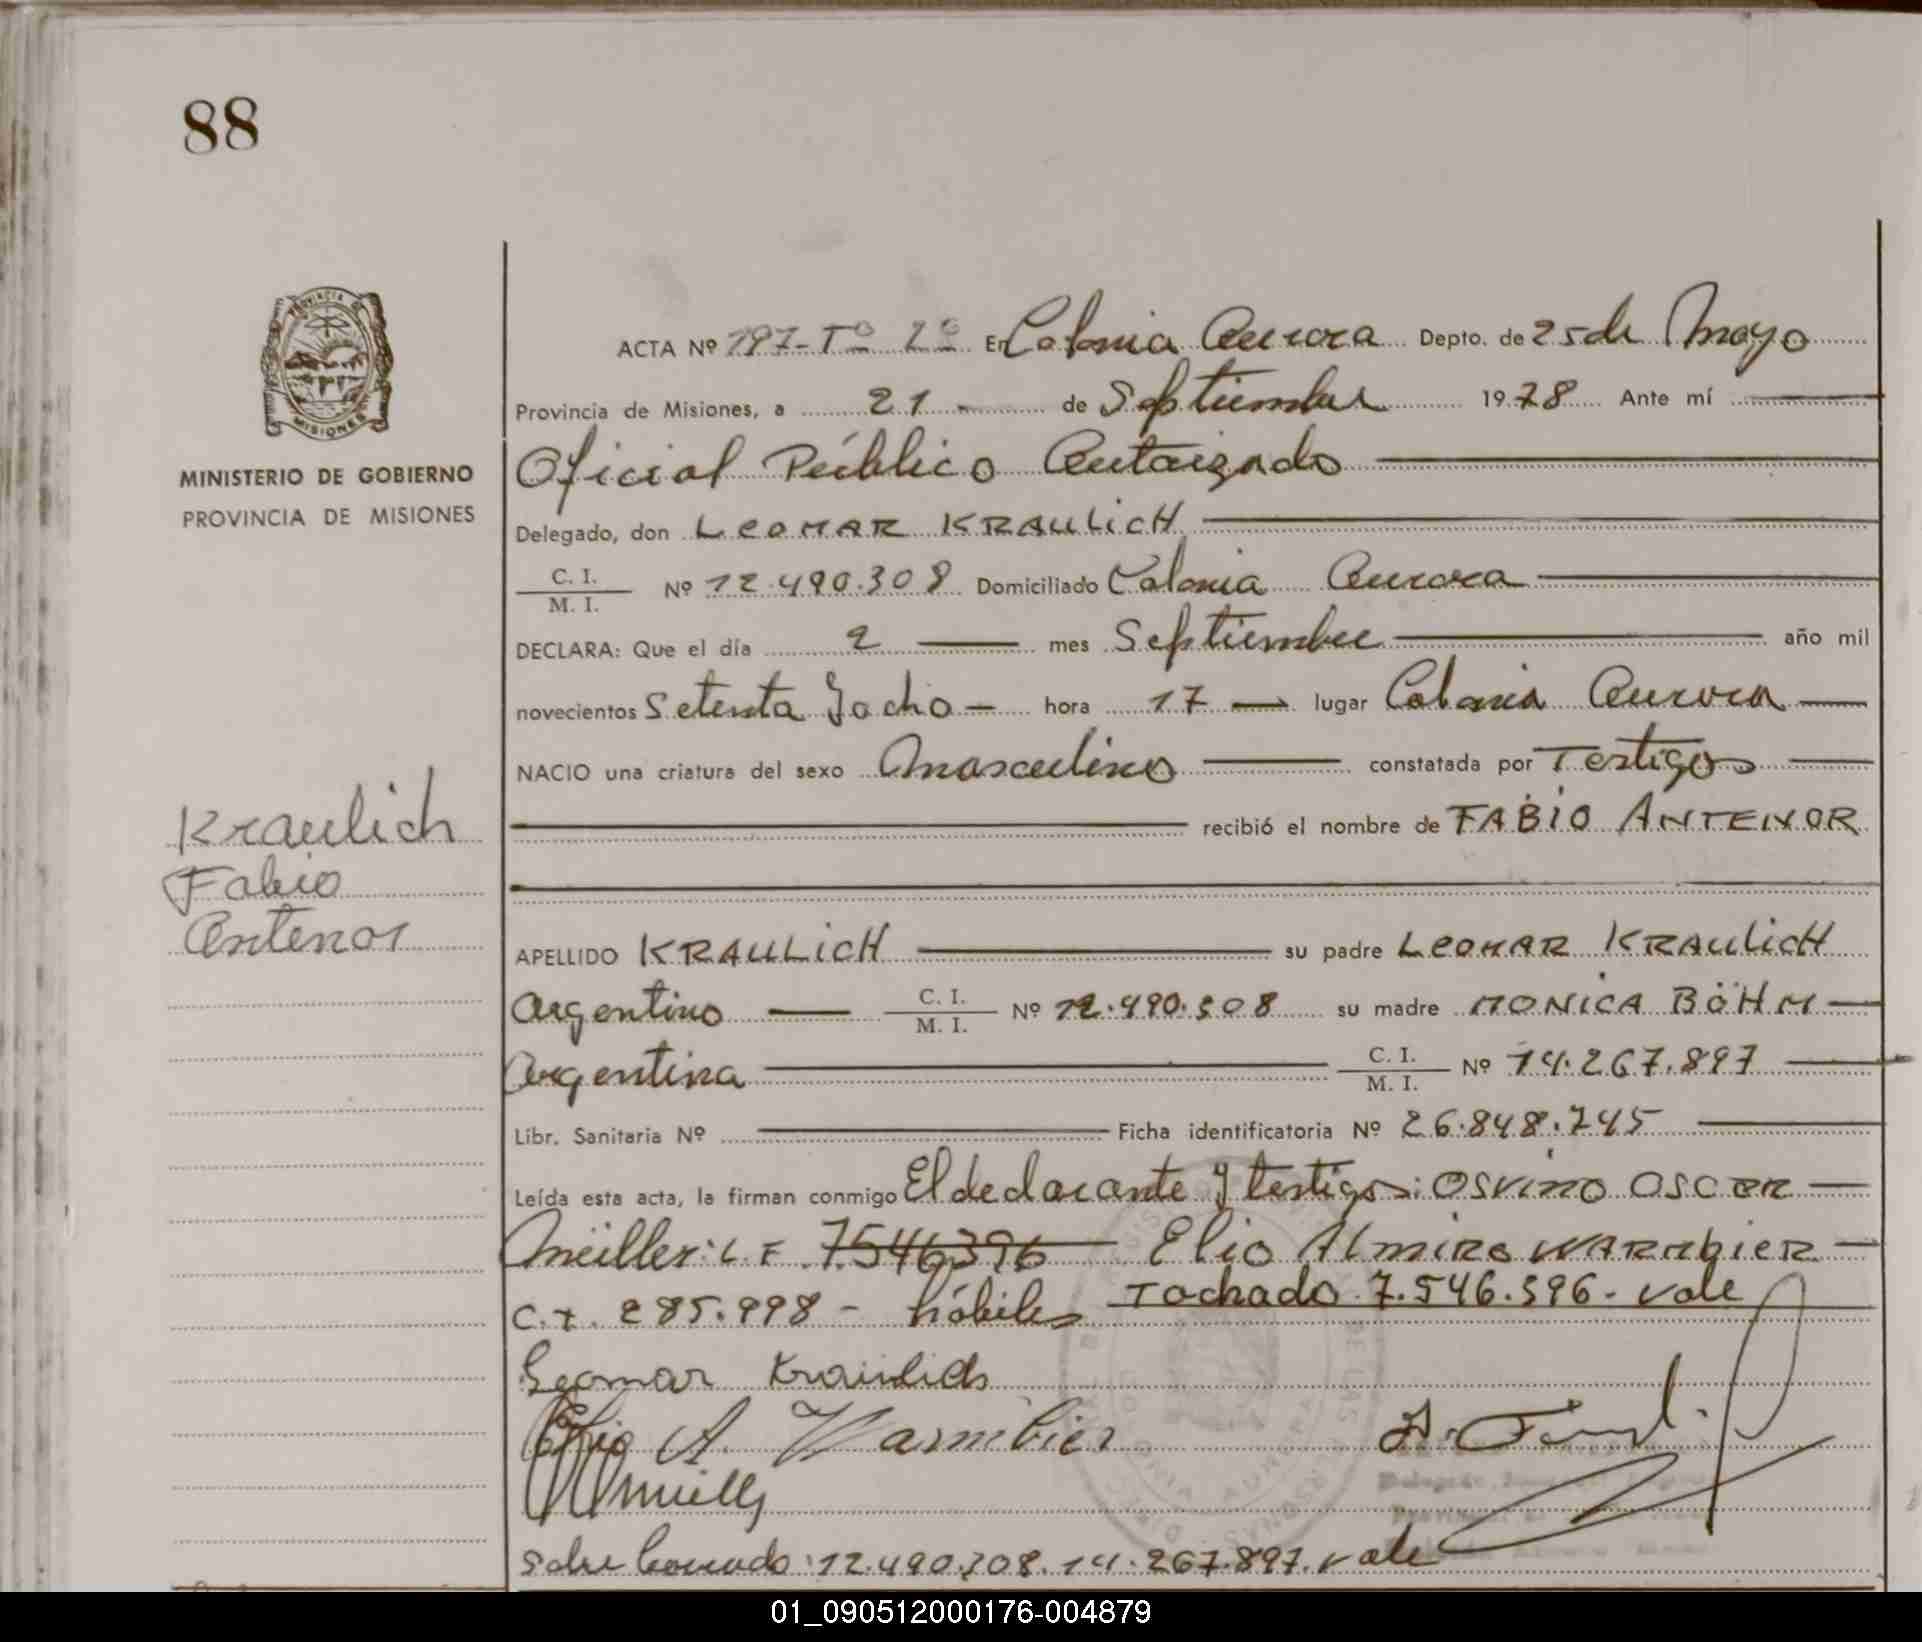 88
PROVINCIA DE
MISIONES
MINISTERIO DE GOBIERNO
PROVINCIA DE MISIONES
ACTA Nº 197-Tº 2º En Colonia Aurora Depto. de 25 de Mayo
Provincia de Misiones, a 21 de Septiembre 1978 Ante mí
Oficial Público Autorizado
Delegado, don LEOMAR KRAULICH
C. I.
M. I. Nº 12.490.308 Domiciliado Colonia Aurora
DECLARA: Que el día 2 mes Septiembre año mil
novecientos Setenta y ocho - hora 17 lugar Colonia Aurora
NACIO una criatura del sexo Masculino constatada por Testigos
recibió el nombre de FABIO ANTENOR
Kraulich
Fabio
Antenor
APELLIDO KRAULICH su padre LEOMAR KRAULICH
Argentino C. I.
M. I. Nº 12.490.308 su madre MONICA BÖHM
Argentina C. I.
M. I. Nº 14.267.897
Libr. Sanitaria Nº Ficha identificatoria Nº 26.848.745
Leída esta acta, la firman conmigo El declarante y testigos: OSVINO OSCAR
Müller: L. E. 7546396 Elio Almiro WARMBIER
C.I. 285.998 - hábiles Tachado 7.546.396 - vale
Leomar Kraulich
Elio A. Warmbier
Sobre borrado: 12.490.308. 14.267.897. vale
01_090512000176-004879